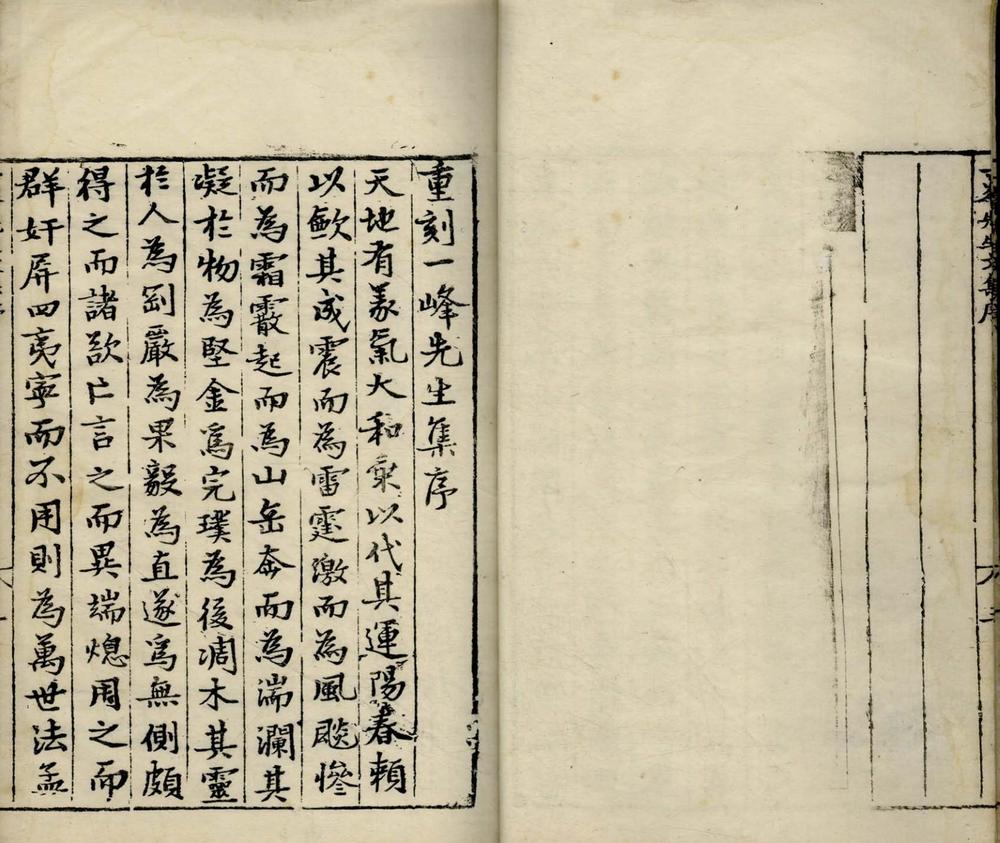 先生文集序
重刻一峰先生集序
天地有義氣大和乘以代其運陽春賴
以歛其成震而為雷霆激而為風飈慘
而為霜霰起而為山岳奔而為湍瀾其
凝於物為堅金為完璞為後凋木其靈
於人為剛嚴為果毅為直遂為無側頗
得之而諸欲亡言之而異端熄用之而
群奸屏四夷寧而不用則為萬世法孟